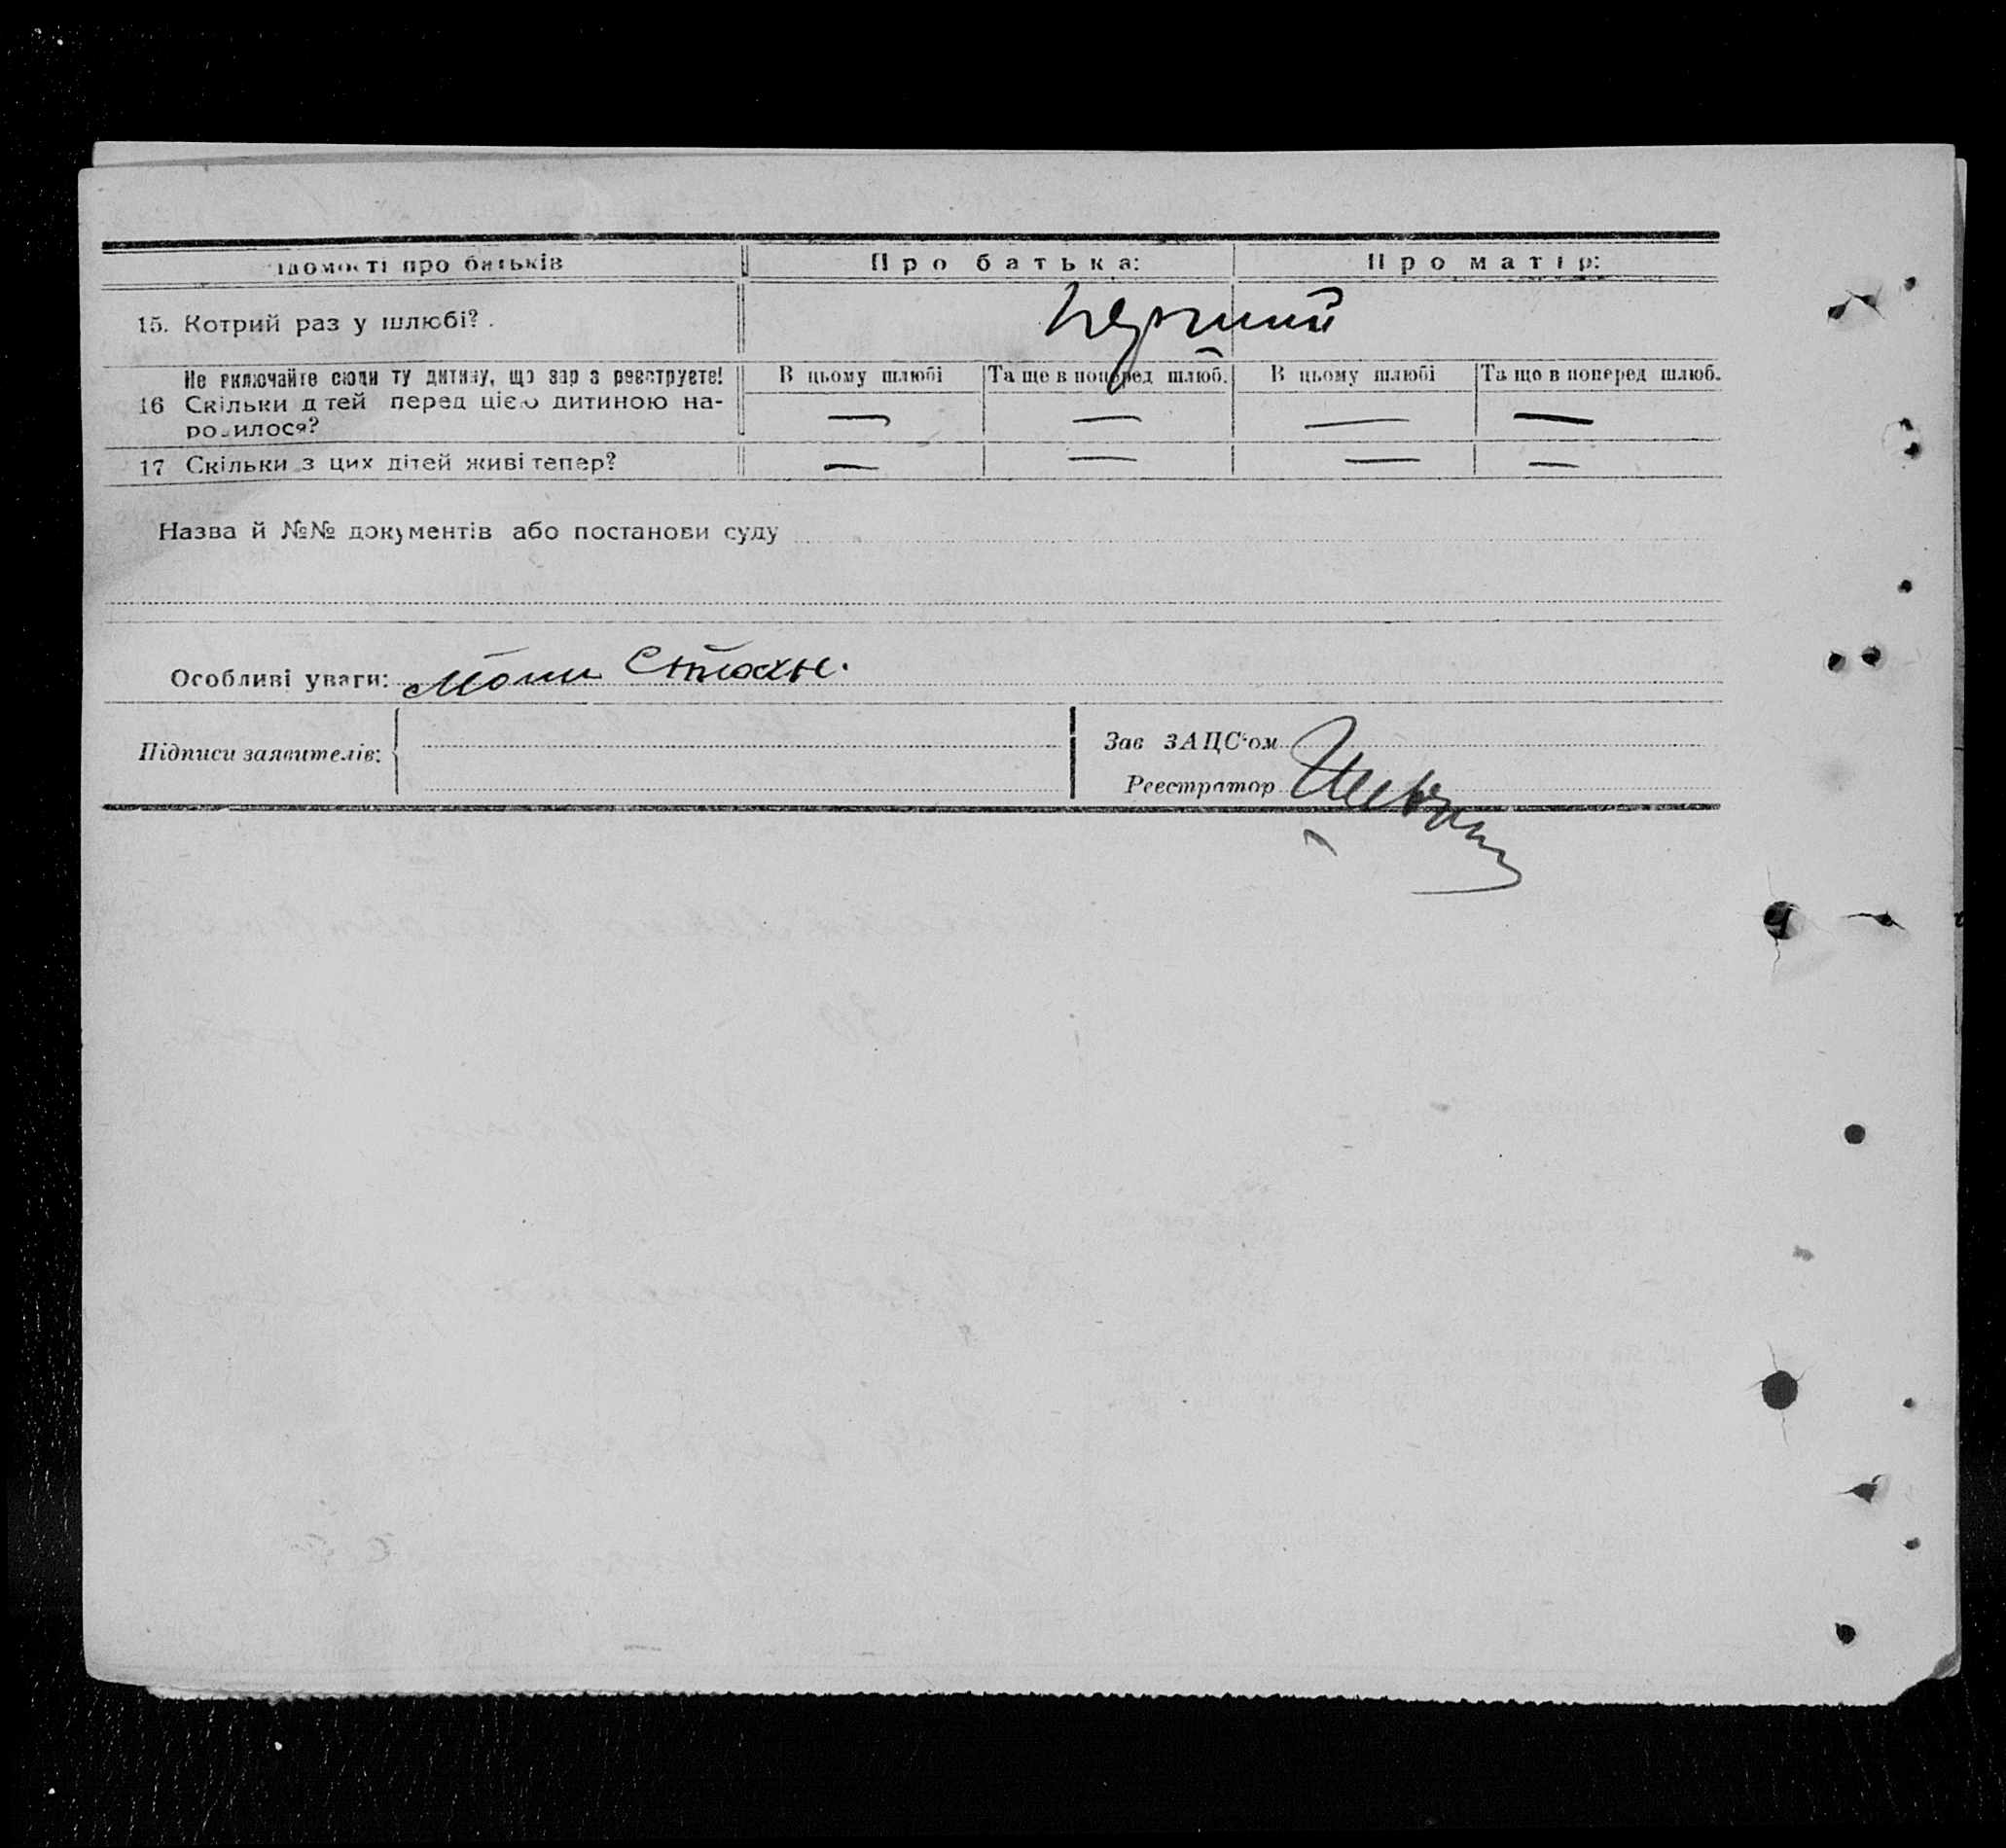 ідомості про батьків Про батька: Про матір:
15. Котрий раз у шлюбі? . перший
Не включайте сюди ту дитину, що зараз реєструєте! В цьому шлюбі Та ще в поперед шлюб. В цьому шлюбі Та що в поперед шлюб.
16 Скільки дітей перед цією дитиною на- — — — —
родилося?
17 Скільки з цих дітей живі тепер? — — — —
Назва й №№ документів або постанови суду
Особливі уваги:
Підписи заявителів: Зав ЗАЦС'ом
Реєстратор